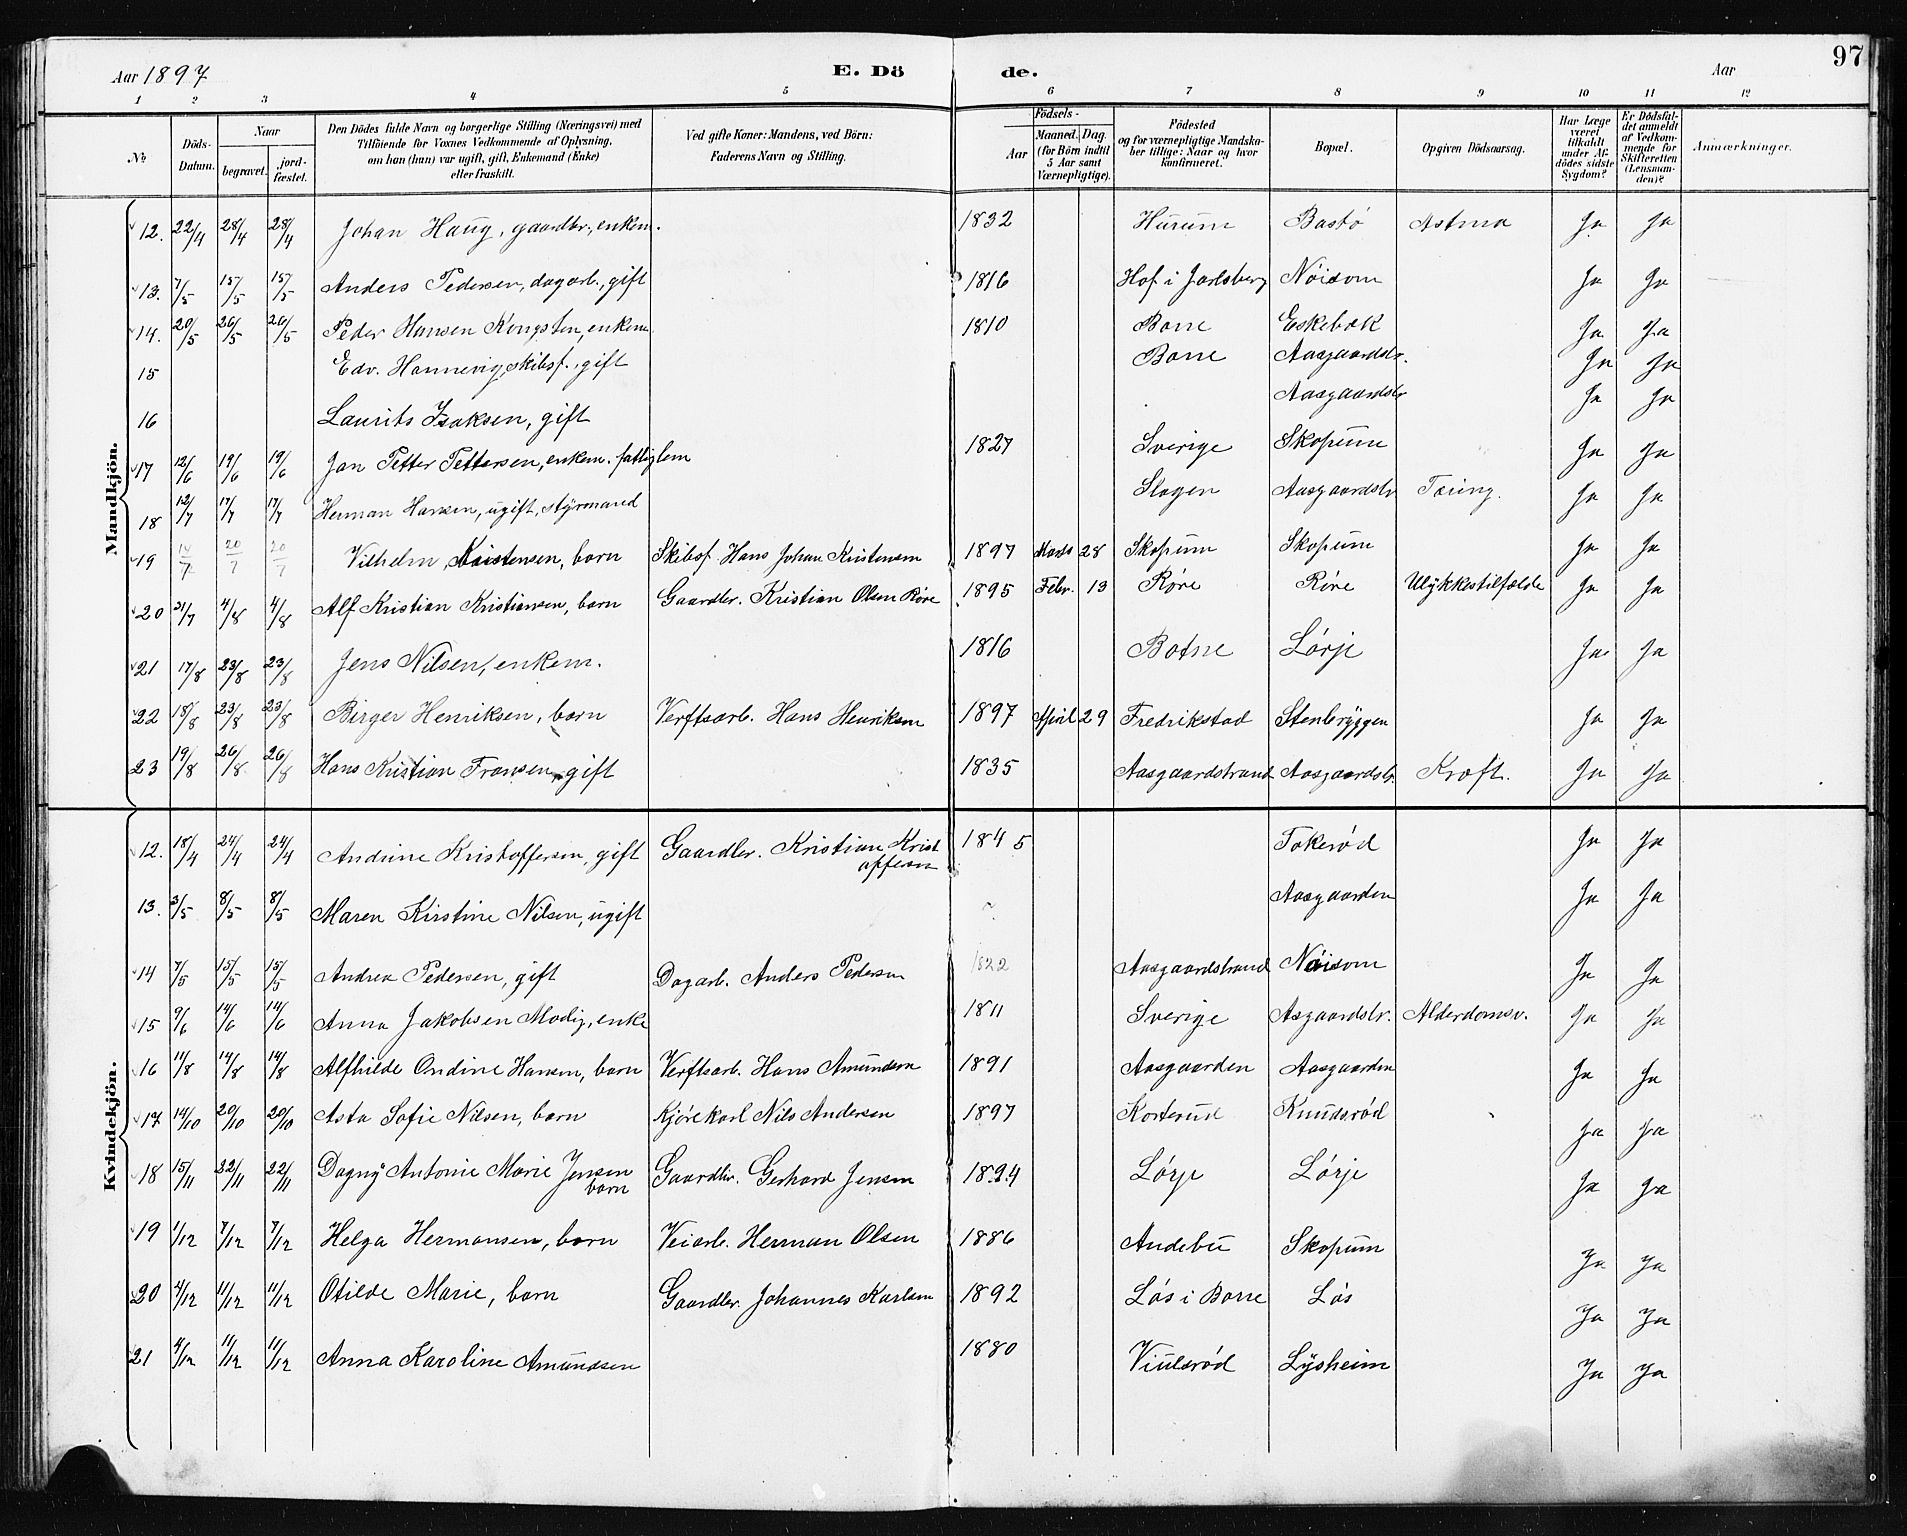 Aar 1897 E. Dö de. Aar 97
1 2 3 4 5 6 7 8 9 10 11 12
No Döds-Datum. Naar begravet. jord-fæstet. Den Dödes fulde Navn og borgerlige Stilling (Næringsvei) med Tilföiende for Voxnes Vedkommende af Oplysning, om hun (han) var ugift, gift, Enkemand (Enke) eller fraskilt. Ved gifte Koner: Mandens, ved Börn: Faderens Navn og Stilling. Födsels- Aar Maaned. Dag. (for Börn indtil 5 Aar samt Værnepligtige). Födested og for værnepligtige Mandskaber tillige: Naar og hvor konfirmeret. Bopæl. Opgiven Dödsaarsag. Har Læge været tilkaldt under Afdödes sidste Sygdom? Er Dödsfaldet anmeldt af Vedkommende for Skifteretten (Lensmanden)? Anmærkninger.
Mandkjön.
12. 22/4 28/4 28/4 Johan Haug, gaardbr., enkem. 1832 Hurum Bastö Astma Ja Ja
13. 7/5 15/5 15/5 Anders Pedersen, dagarb., gift 1816 Hof i Jarlsberg Nöisom Ja Ja
14. 20/5 26/5 26/5 Peder Hansen Kongsten, enkem. 1810 Borre Eskebæk Ja Ja
15 Edv. Hannevig, skibsf., gift Borre Aasgaardstr. Ja Ja
16 Laurits Isaksen, gift Aasgaardstr Ja Ja
17 12/6 19/6 19/6 Jan Petter Pettersen, enkem. fattiglem 1827 Sverige Skopum Ja Ja
18 12/7 17/7 17/7 Herman Hansen, ugift, styrmand Slagen Aasgaardstr Tæring. Ja Ja
19 14/7 20/7 20/7 Vilhelm Kristensen, barn Skibsf. Hans Johan Kristensen 1897 Marts 28 Skopum Skopum Ja Ja
20 31/7 4/8 4/8 Alf Kristian Kristiansen, barn Gaardbr. Kristian Olsen Röre 1895 Febr. 13 Röre Röre Ulykkestilfælde Ja Ja
21 17/8 23/8 23/8 Jens Nilsen, enkem. 1816 Botne Lörje Ja Ja
22 18/8 23/8 23/8 Birger Henriksen, barn Verftsarb. Hans Henriksen 1897 April 29 Fredrikstad Stenbryggen Ja Ja
23 19/8 26/8 26/8 Hans Kristian Fransen, gift 1835 Aasgaardstrand Aasgaardstr. Kræft. Ja Ja
Kvindekjön.
12. 18/4 24/4 24/4 Andrine Kristoffersen, gift Gaardbr. Kristian Krist 1845 Tokeröd Ja Ja
offersen
13. 3/5 8/5 8/5 Maren Kirstine Nilsen, ugift Aasgaarden Ja Ja
14 7/5 15/5 15/5 Andrea Pedersen, gift Dagarb. Anders Pedersen 1822 Aasgaardstrand Nöisom Ja Ja
15 9/6 14/6 14/6 Anna Jakobsen Modig, enke 1811 Sverige Asgaardstr. Alderdomsv. Ja Ja
16 11/8 14/8 14/8 Alfhilde Ondine Hansen, barn Verftsarb. Hans Amundsen 1891 Aasgaarden Aasgaarden Ja Ja
17 14/10 20/10 20/10 Asta Sofie Nilsen, barn Kjörekarl Nils Andersen 1897 Korterud Knudsröd Ja Ja
18 15/11 22/11 22/11 Dagny Antonie Marie Jensen Gaardbr. Gerhard Jensen 1894 Lörje Lörje Ja Ja
barn
19 1/12 7/12 7/12 Helga Hermansen, barn Veiarb. Herman Olsen 1886 Andebu Skopum Ja Ja
20 4/12 11/12 11/12 Otilde Marie, barn Gaardbr. Johannes Karlsen 1892 Lös i Borre Lös Ja Ja
21 4/12 11/12 11/12 Anna Karoline Amundsen 1880 Viulsröd Lysheim Ja Ja